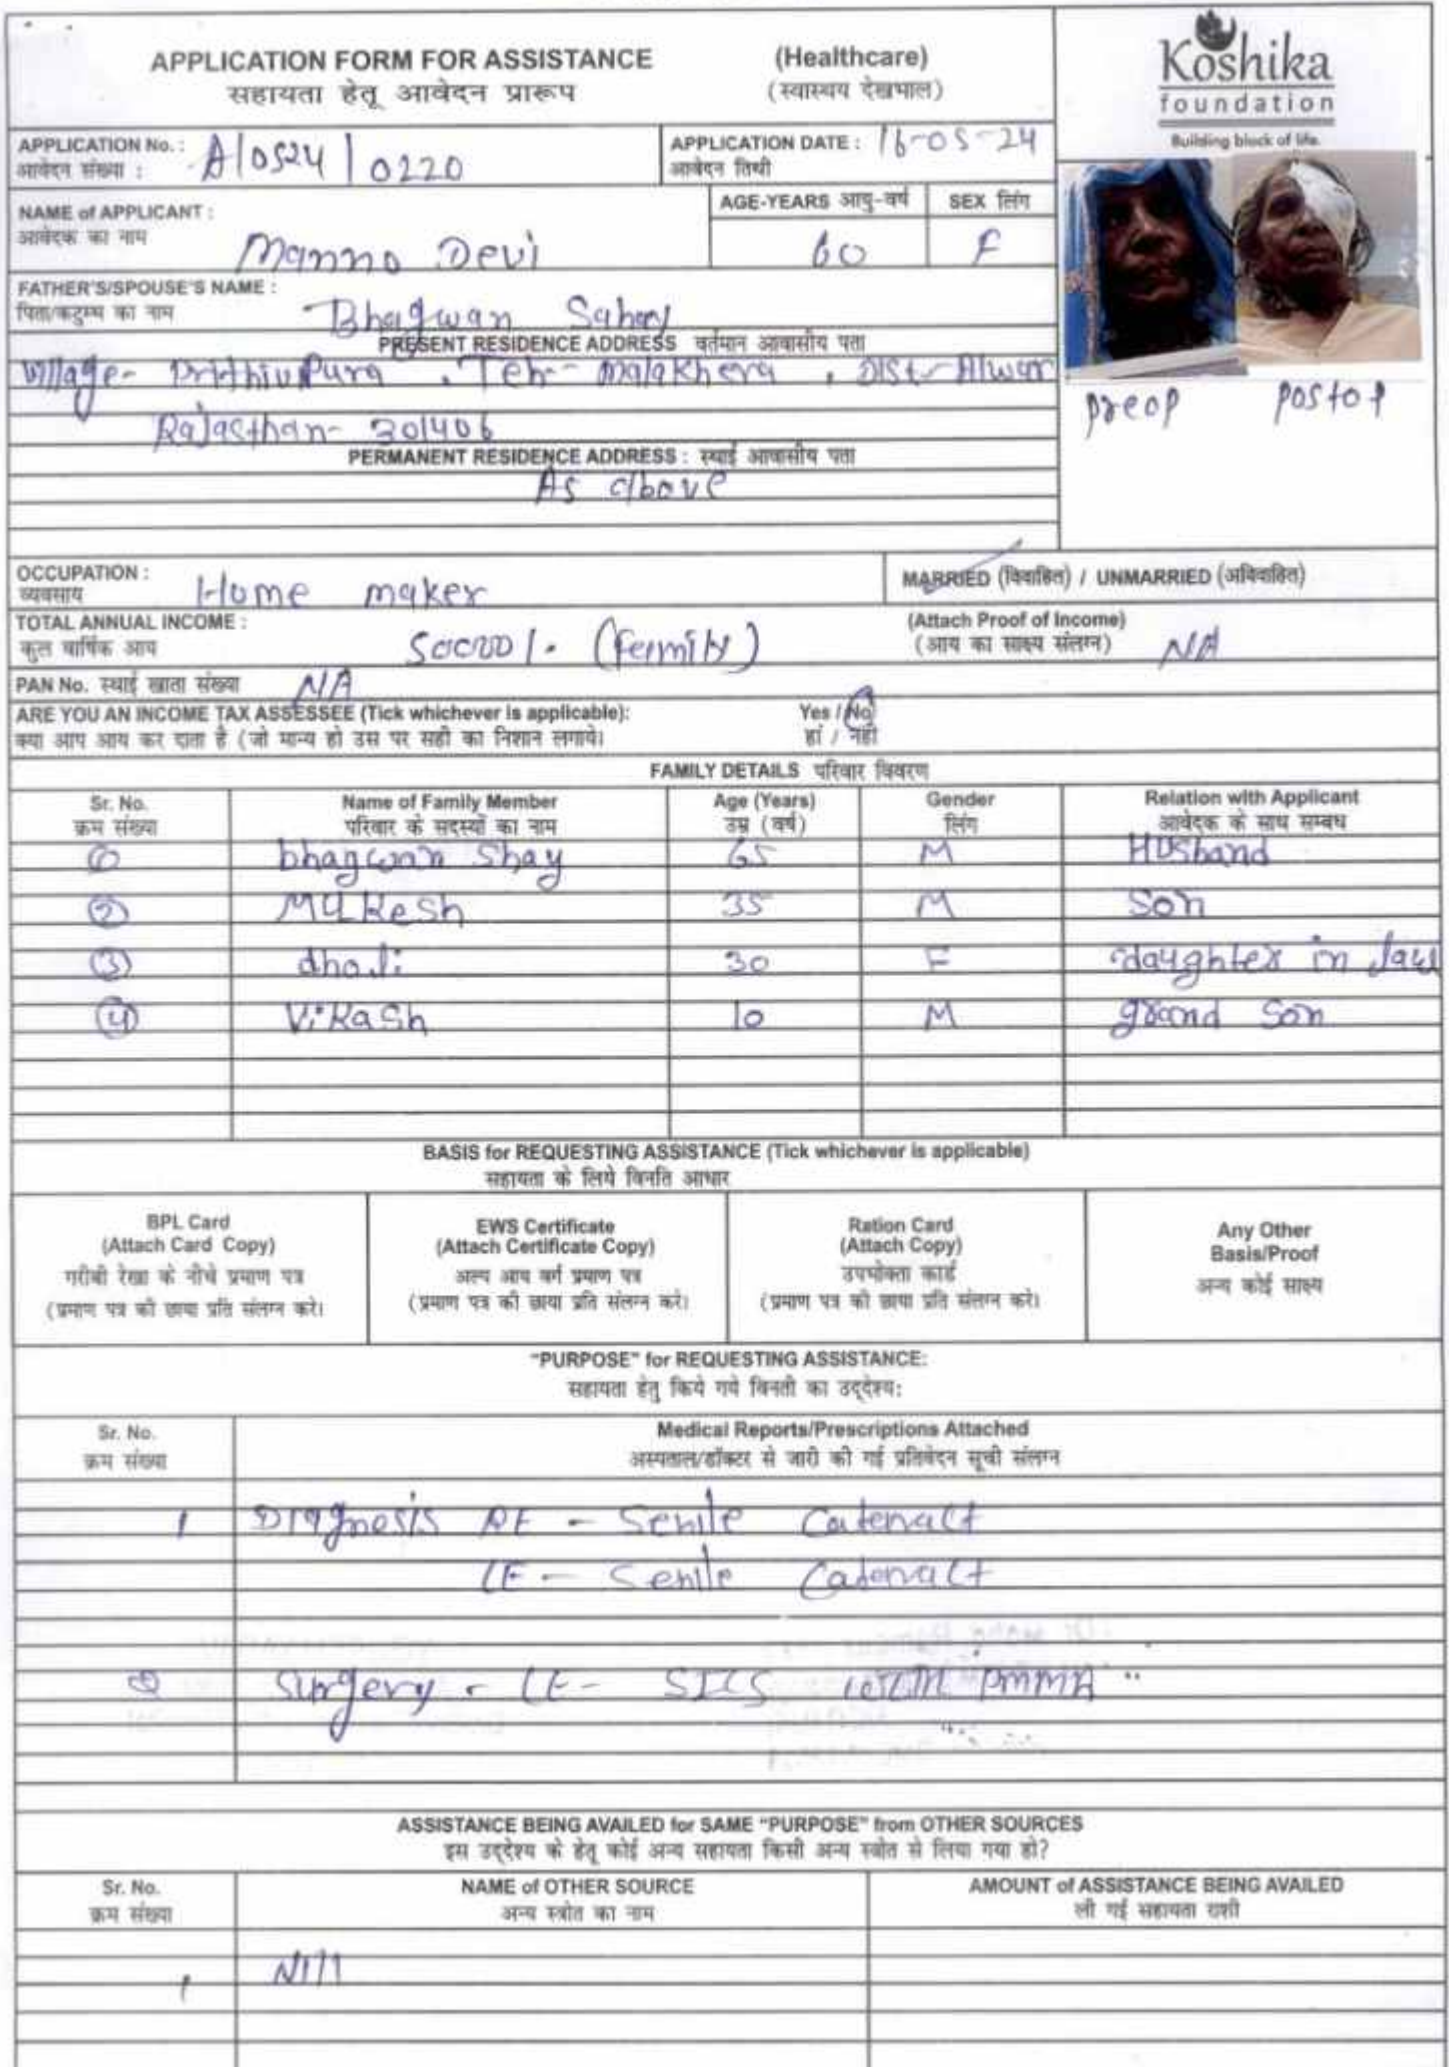 APPLICATION FORM FOR ASSISTANCE (Healthcare)
सहायता हेतू आवेदन प्रारूप (स्वास्थय देखभाल)
Koshika
foundation
Building block of life.
APPLICATION No. : A/0524/0220 APPLICATION DATE : 16-05-24
आवेदन संख्या : आवेदन तिथी
NAME of APPLICANT : AGE-YEARS आयु-वर्ष SEX लिंग
आवेदक का नाम Manno Devi 60 F
FATHER'S/SPOUSE'S NAME :
पिता/कटुम्ब का नाम Bhagwan Sahay
PRESENT RESIDENCE ADDRESS वर्तमान आवासीय पता
Village- Prithivpura , Teh- Malakhera , Dist- Alwar
Rajasthan- 301406
preop postop
PERMANENT RESIDENCE ADDRESS : स्थाई आवासीय पता
As above
OCCUPATION : MARRIED (विवाहित) / UNMARRIED (अविवाहित)
व्यवसाय Home maker
TOTAL ANNUAL INCOME : (Attach Proof of Income)
कुल वार्षिक आय (family) (आय का साक्ष्य संलग्न) NA
PAN No. स्थाई खाता संख्या NA
ARE YOU AN INCOME TAX ASSESSEE (Tick whichever is applicable): Yes / No
क्या आप आय कर दाता है (जो मान्य हो उस पर सही का निशान लगाये। हां / नही
FAMILY DETAILS परिवार विवरण
Sr. No. Name of Family Member Age (Years) Gender Relation with Applicant
क्रम संख्या परिवार के सदस्यों का नाम उम्र (वर्ष) लिंग आवेदक के साथ सम्बध
1 bhagwan Shay 65 M Husband
2 Mukesh 35 M Son
3 dholi 30 F daughter in law
4 Vikash 10 M grand Son
BASIS for REQUESTING ASSISTANCE (Tick whichever is applicable)
सहायता के लिये विनति आधार
BPL Card
(Attach Card Copy)
गरीबी रेखा के नीचे प्रमाण पत्र
(प्रमाण पत्र की छाया प्रति संलग्न करे।
EWS Certificate
(Attach Certificate Copy)
अल्प आय वर्ग प्रमाण पत्र
(प्रमाण पत्र की छाया प्रति संलग्न करे।
Ration Card
(Attach Copy)
उपभोक्ता कार्ड
(प्रमाण पत्र की छाया प्रति संलग्न करे।
Any Other
Basis/Proof
अन्य कोई साक्ष्य
"PURPOSE" for REQUESTING ASSISTANCE:
सहायता हेतु किये गये विनती का उद्देश्य:
Sr. No. Medical Reports/Prescriptions Attached
क्रम संख्या अस्पताल/डॉक्टर से जारी की गई प्रतिवेदन सूची संलग्न
1 Diagnosis RE - Senile Cataract
LE - Senile Cataract
2 Surgery - LE- SICS with PMMA
ASSISTANCE BEING AVAILED for SAME "PURPOSE" from OTHER SOURCES
इस उद्देश्य के हेतू कोई अन्य सहायता किसी अन्य स्त्रोत से लिया गया हो?
Sr. No. NAME of OTHER SOURCE AMOUNT of ASSISTANCE BEING AVAILED
क्रम संख्या अन्य स्त्रोत का नाम ली गई सहायता राशी
1 Nill